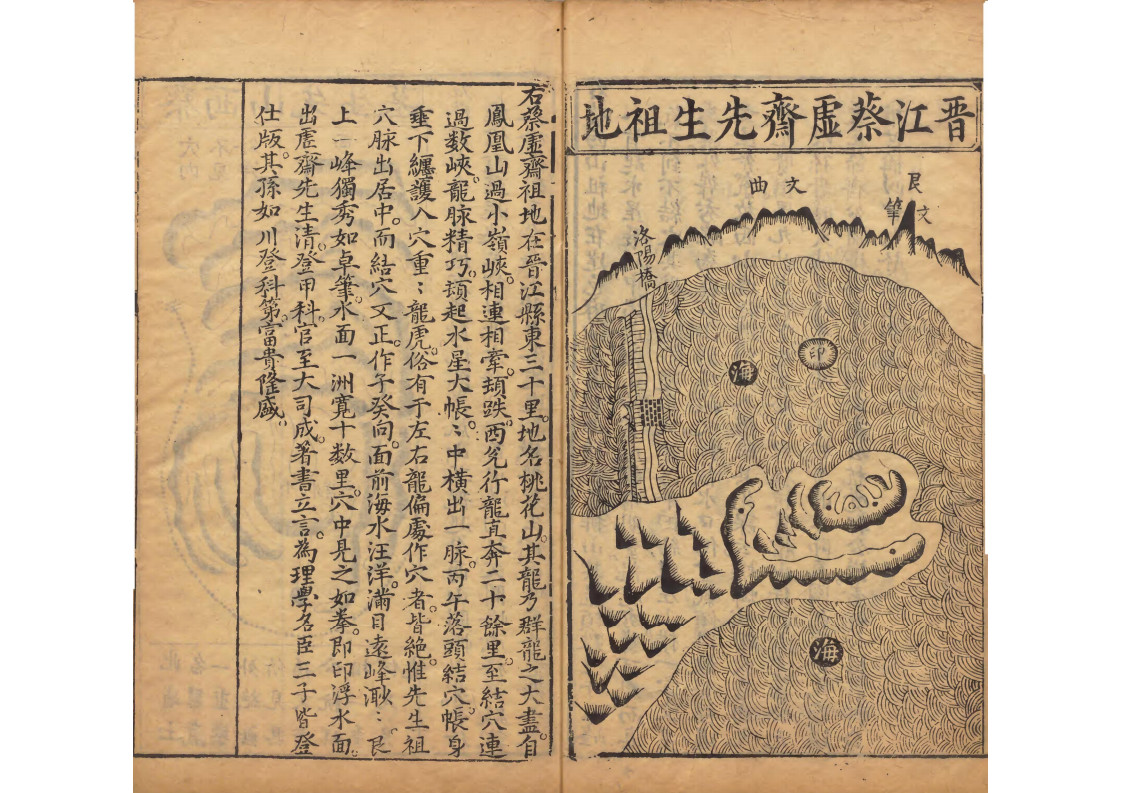 晋江蔡虛齋先生祖地
艮
文筆
文曲
洛陽橋
印
海
海
右蔡虛齋祖地在晋江縣東三十里。地名桃花山。其龍乃群龍之大盡。自
鳳凰山過小嶺峽。相連相牽。頓跌。西兌行龍直奔二十餘里。至結穴連
過数峽。龍脉精巧。頓起水星大帳。〻中横出一脉。丙午落頭結穴。帳身
垂下纏護入穴重〻龍虎。俗有于左右龍偏處作穴者。皆絶。惟先生祖
穴脉出居中。而結穴又正。作子癸向。面前海水汪洋。滿目遠峰耿〻。艮
上一峰獨秀如卓筆。水面一洲寬十数里。穴中見之如拳。即印浮水面。
出虛齋先生清登甲科。官至大司成。著書立言。為理學名臣三子皆登
仕版。其孫如川登科第。富貴隆盛。